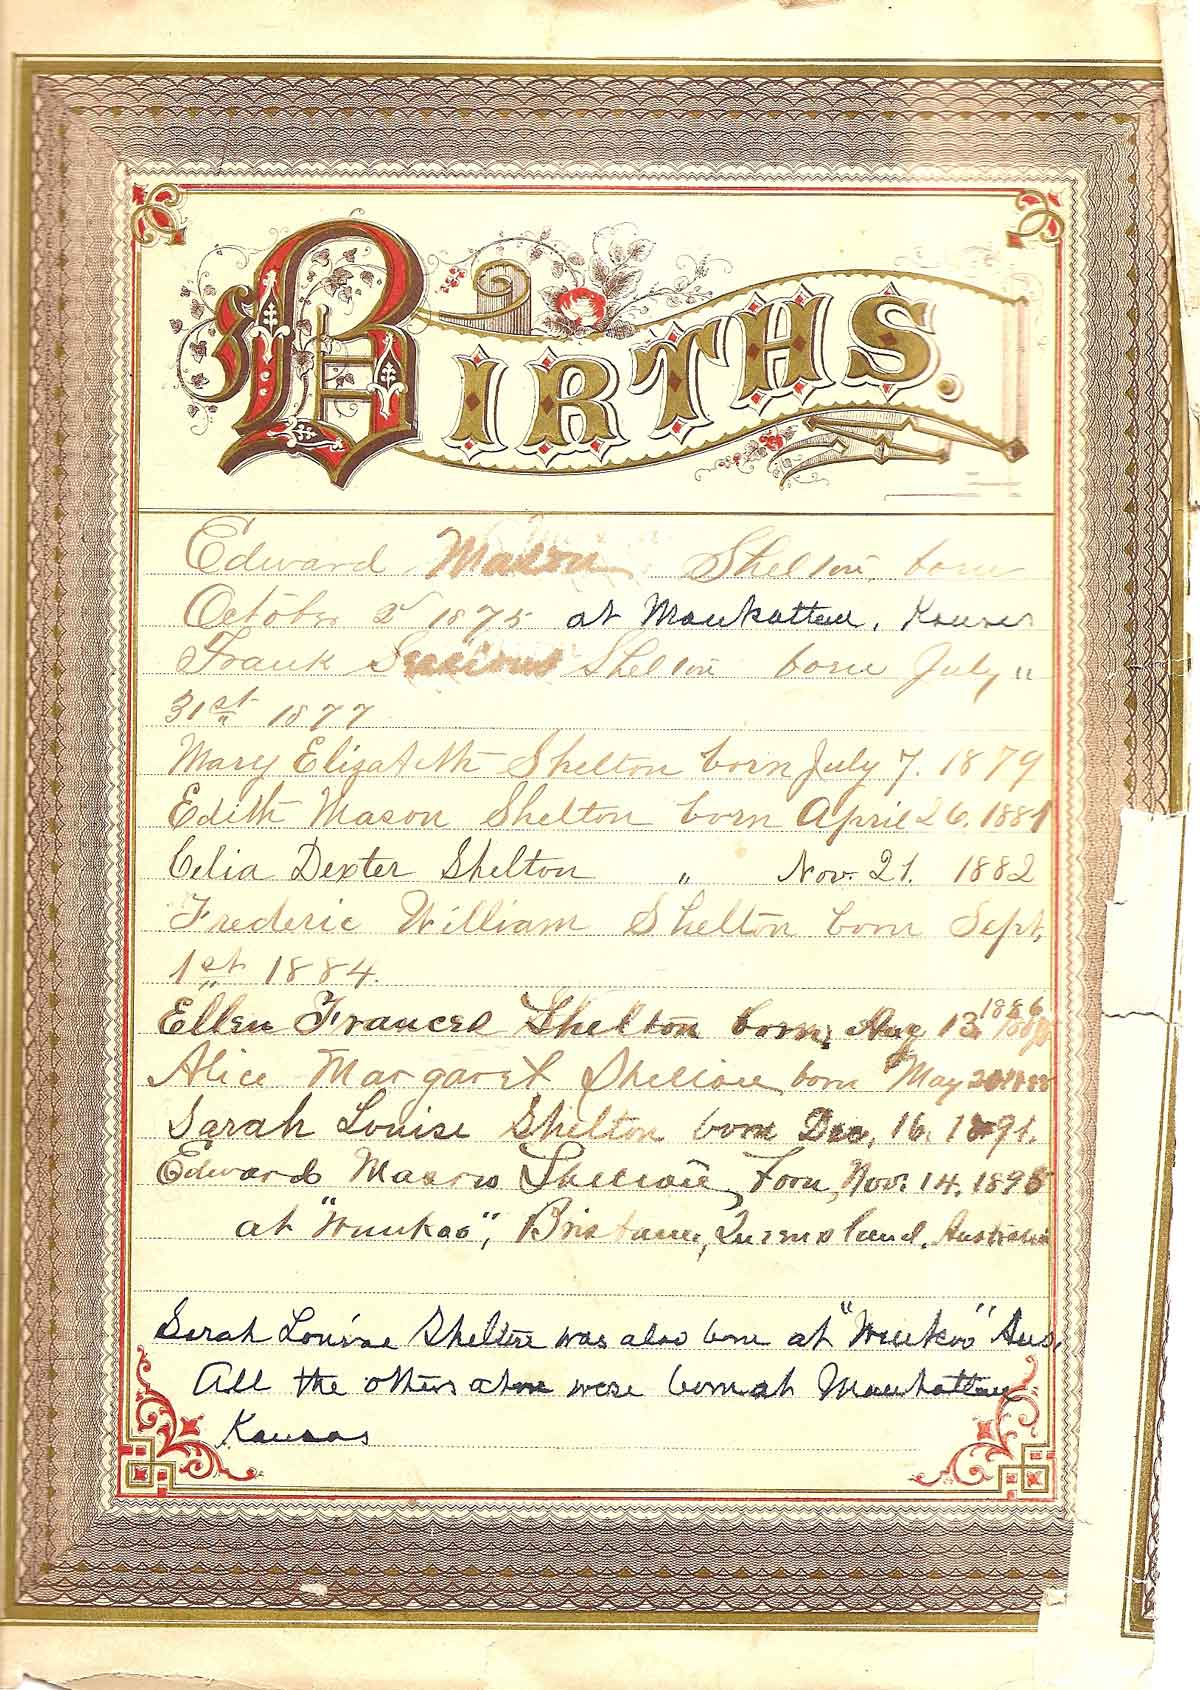 BIRTHS.
Edward Mason Shelton, born
October 2d 1875 at Manhattan, Kansas
Frank Sessions Shelton born July "
31st 1877
Mary Elizabeth Shelton born July 7. 1879
Edith Mason Shelton born April 26. 1881
Celia Dexter Shelton " Nov. 21. 1882
Frederic William Shelton born Sept.
1st 1884.
Ellen Frances Shelton born, Aug 13. 1886
Alice Margaret Shelton born May
Sarah Louise Shelton born Dec. 16. 1891.
Edward Mason Shelton, born, Nov. 14. 1895
at "Wunkoo", Brisbane, Queensland, Australia
Sarah Louise Shelton was also born at "Wunkoo" Aus.
All the others above were born at Manhattan
Kansas